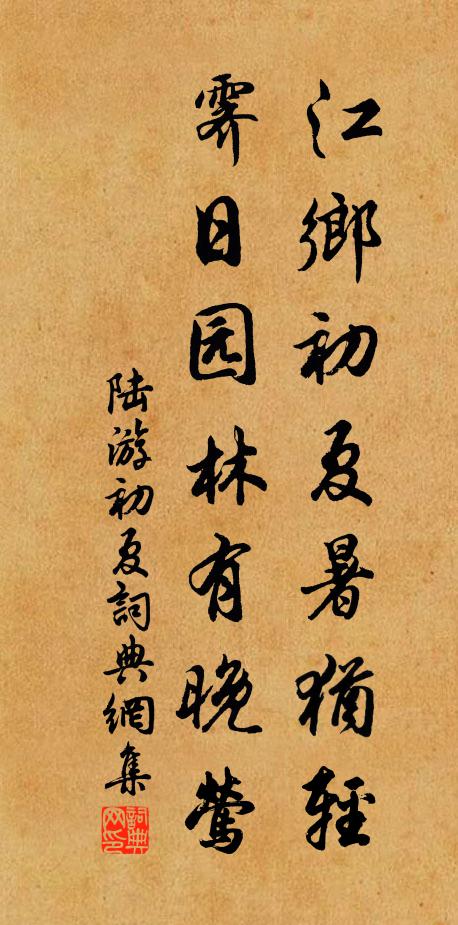 江鄉初夏暑猶輕
霽日园林有晚莺
陆游初夏詞典網集
詞典网印